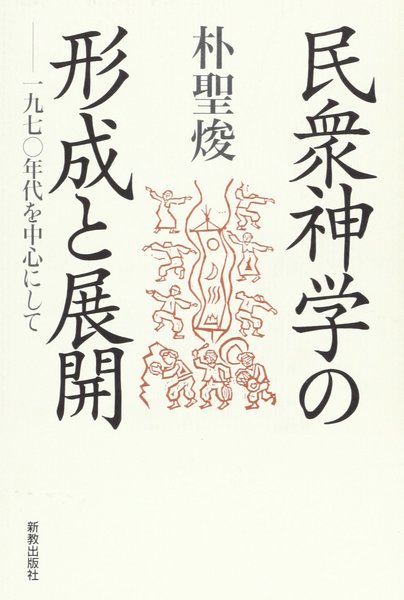 民衆神学の
形成と展開
――一九七〇年代を中心にして
朴聖焌
新教出版社